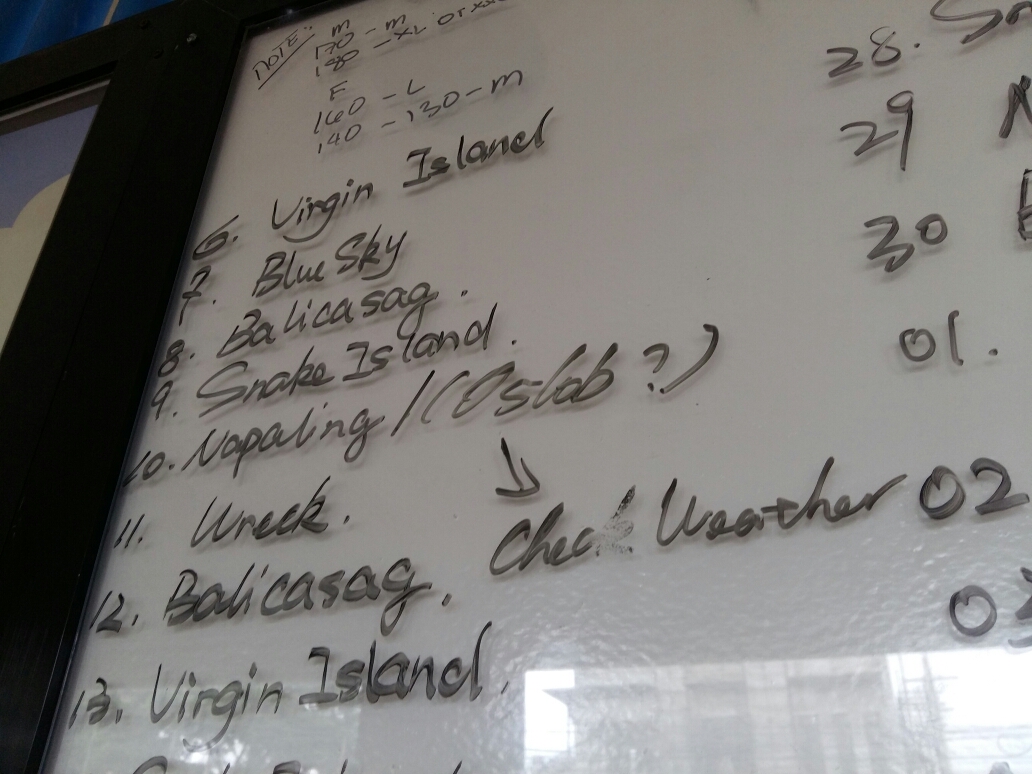 NOTE:
m
170 - m
180 - XL or xx
F
160 - L
140 - 130 - m
6. Virgin Island
7. Blue Sky
8. Balicasag.
9. Snake Island.
10. Napaling / (Oslob?)
11. Wreck.
Check Weather
12. Balicasag.
13. Virgin Island.
28. Sn
29
30
01.
02
03